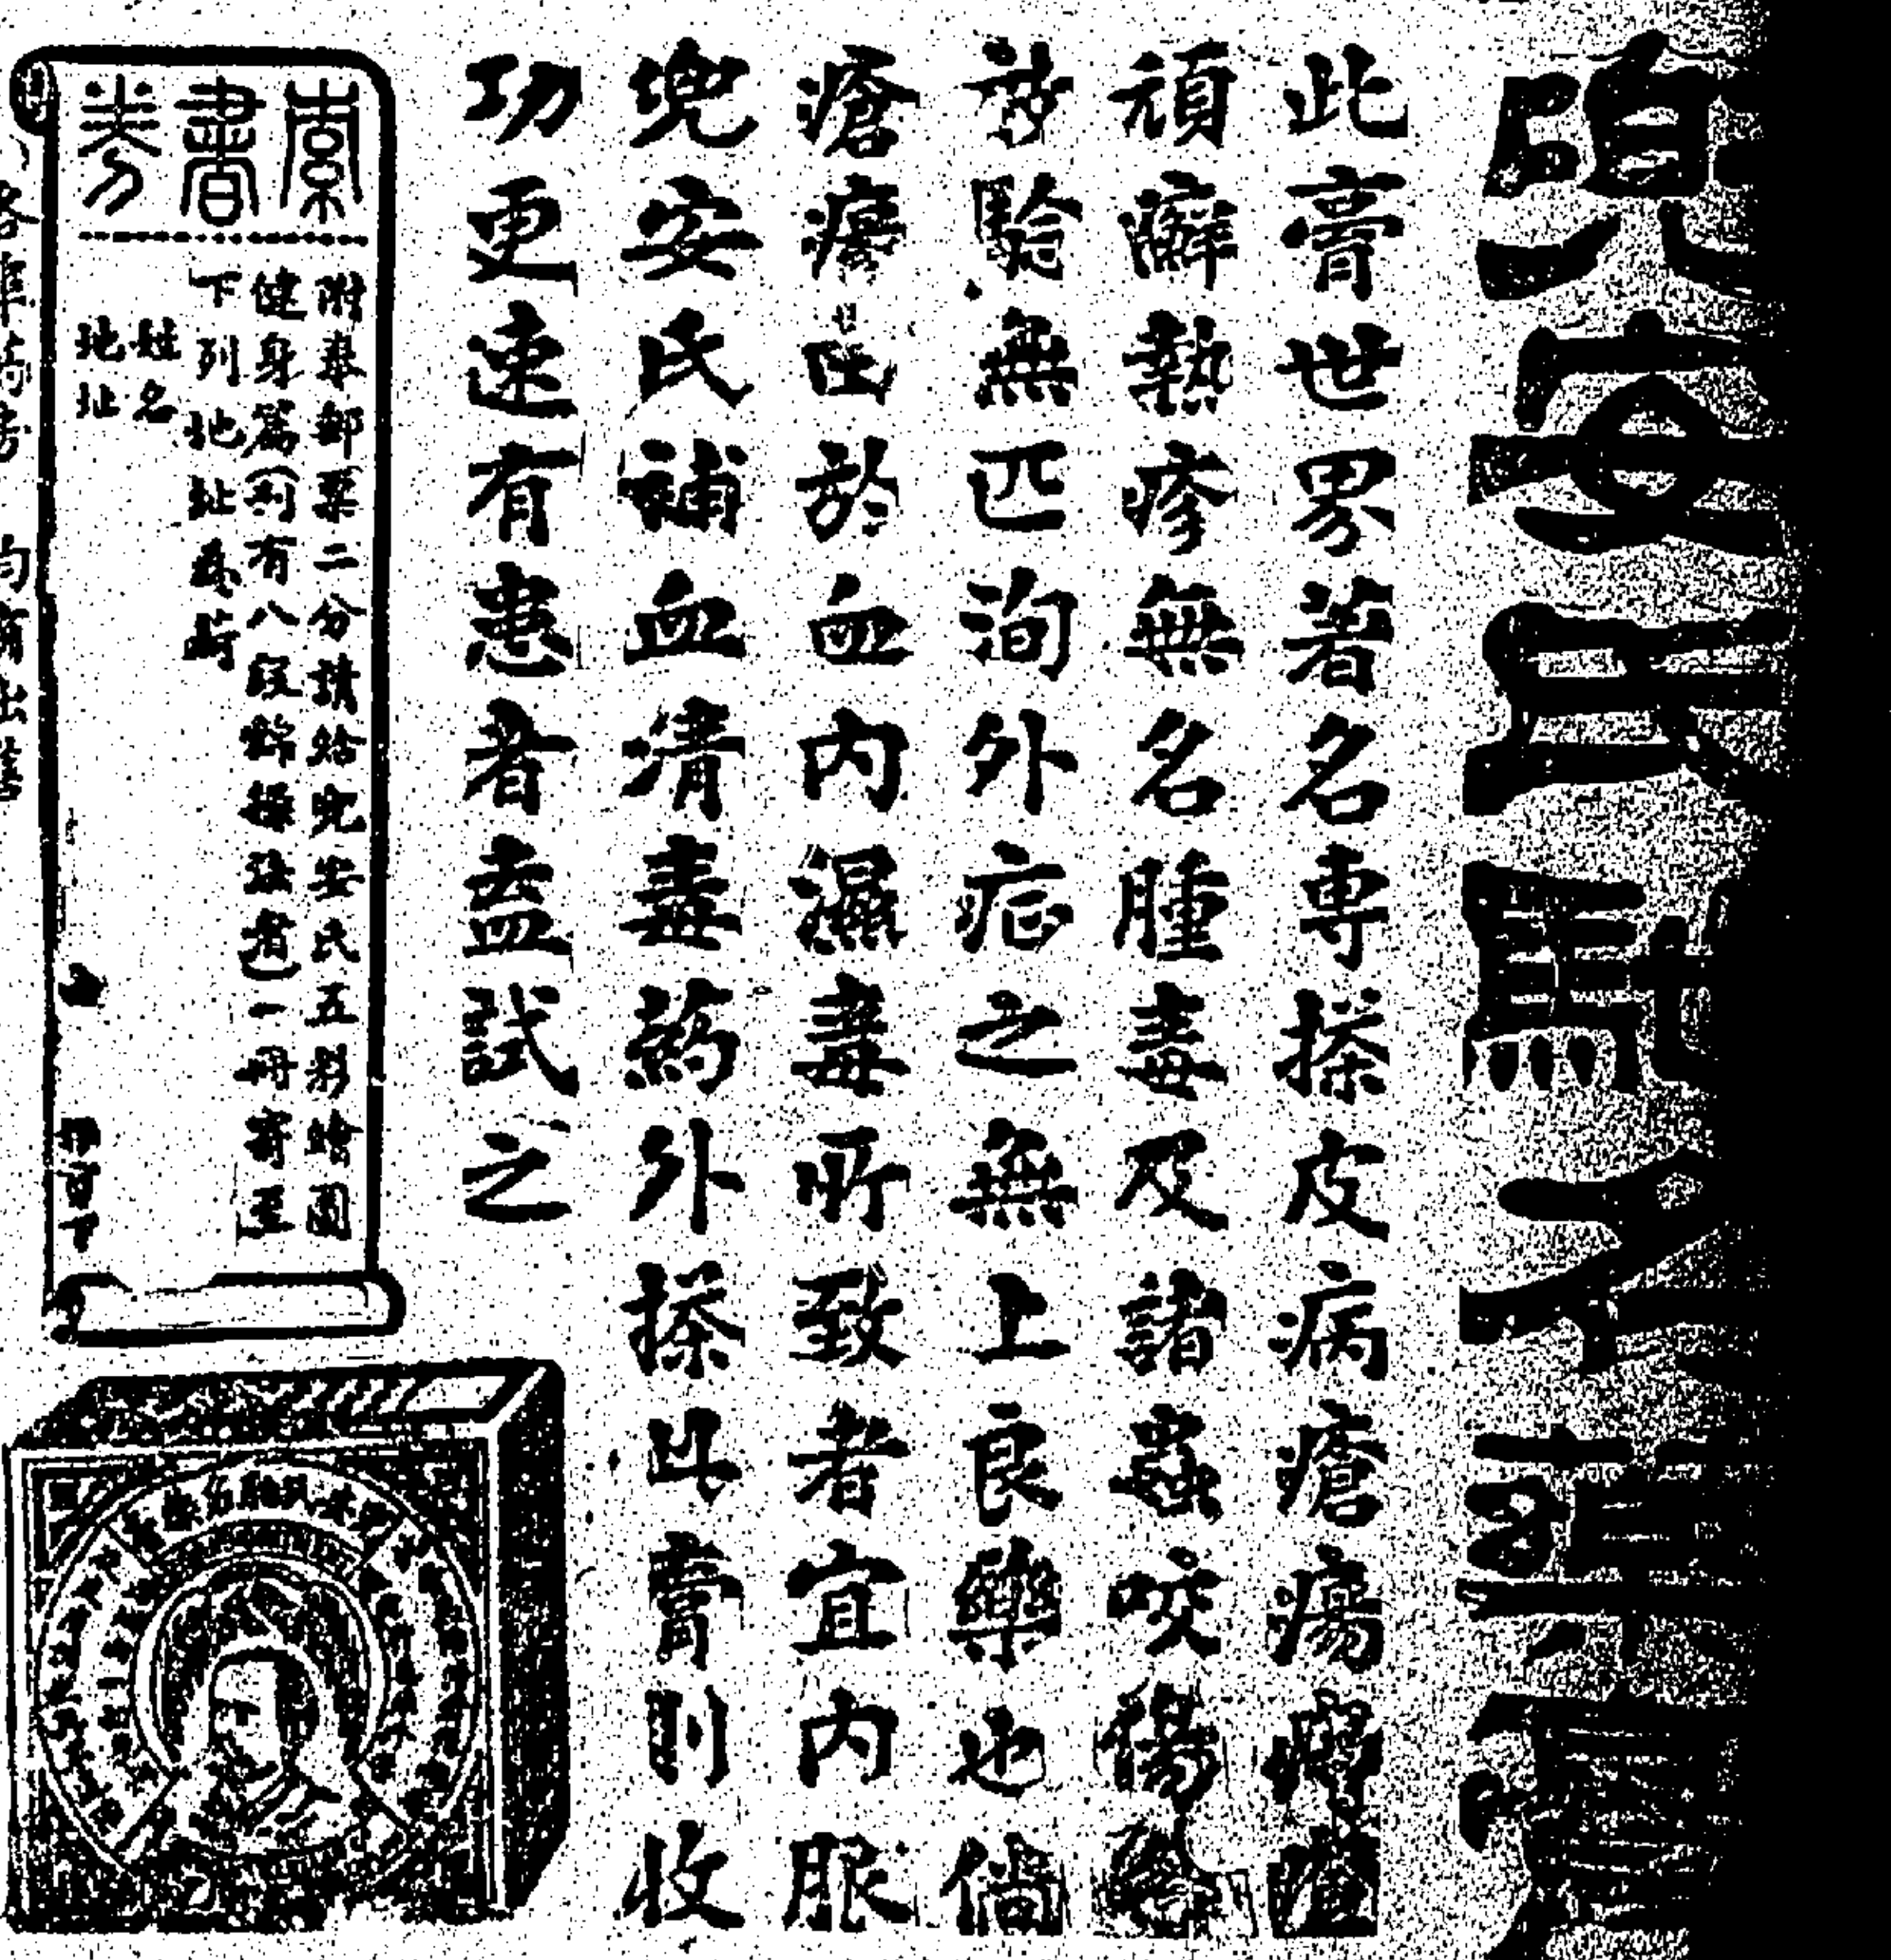 兜安氏馳名藥膏
此膏世界著名專搽皮病瘡瘍
頑癬熱疹無名腫毒及諸蟲咬傷
功驗無匹洵外症之無上良藥也倘
瘡瘍出於血內濕毒所致者宜內服
兜安氏補血清毒藥外搽此膏則收
功更速有患者盍試之
索書券
附奉郵票二分請給兜安氏五彩繪圖
健身篇(內有八段錦操法者)一冊寄至
下列地址為荷
姓名
地址